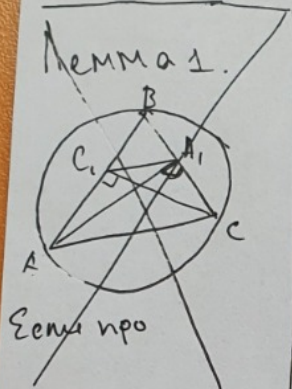 Лемма 1.
B
C₁ A₁
A C
Если про